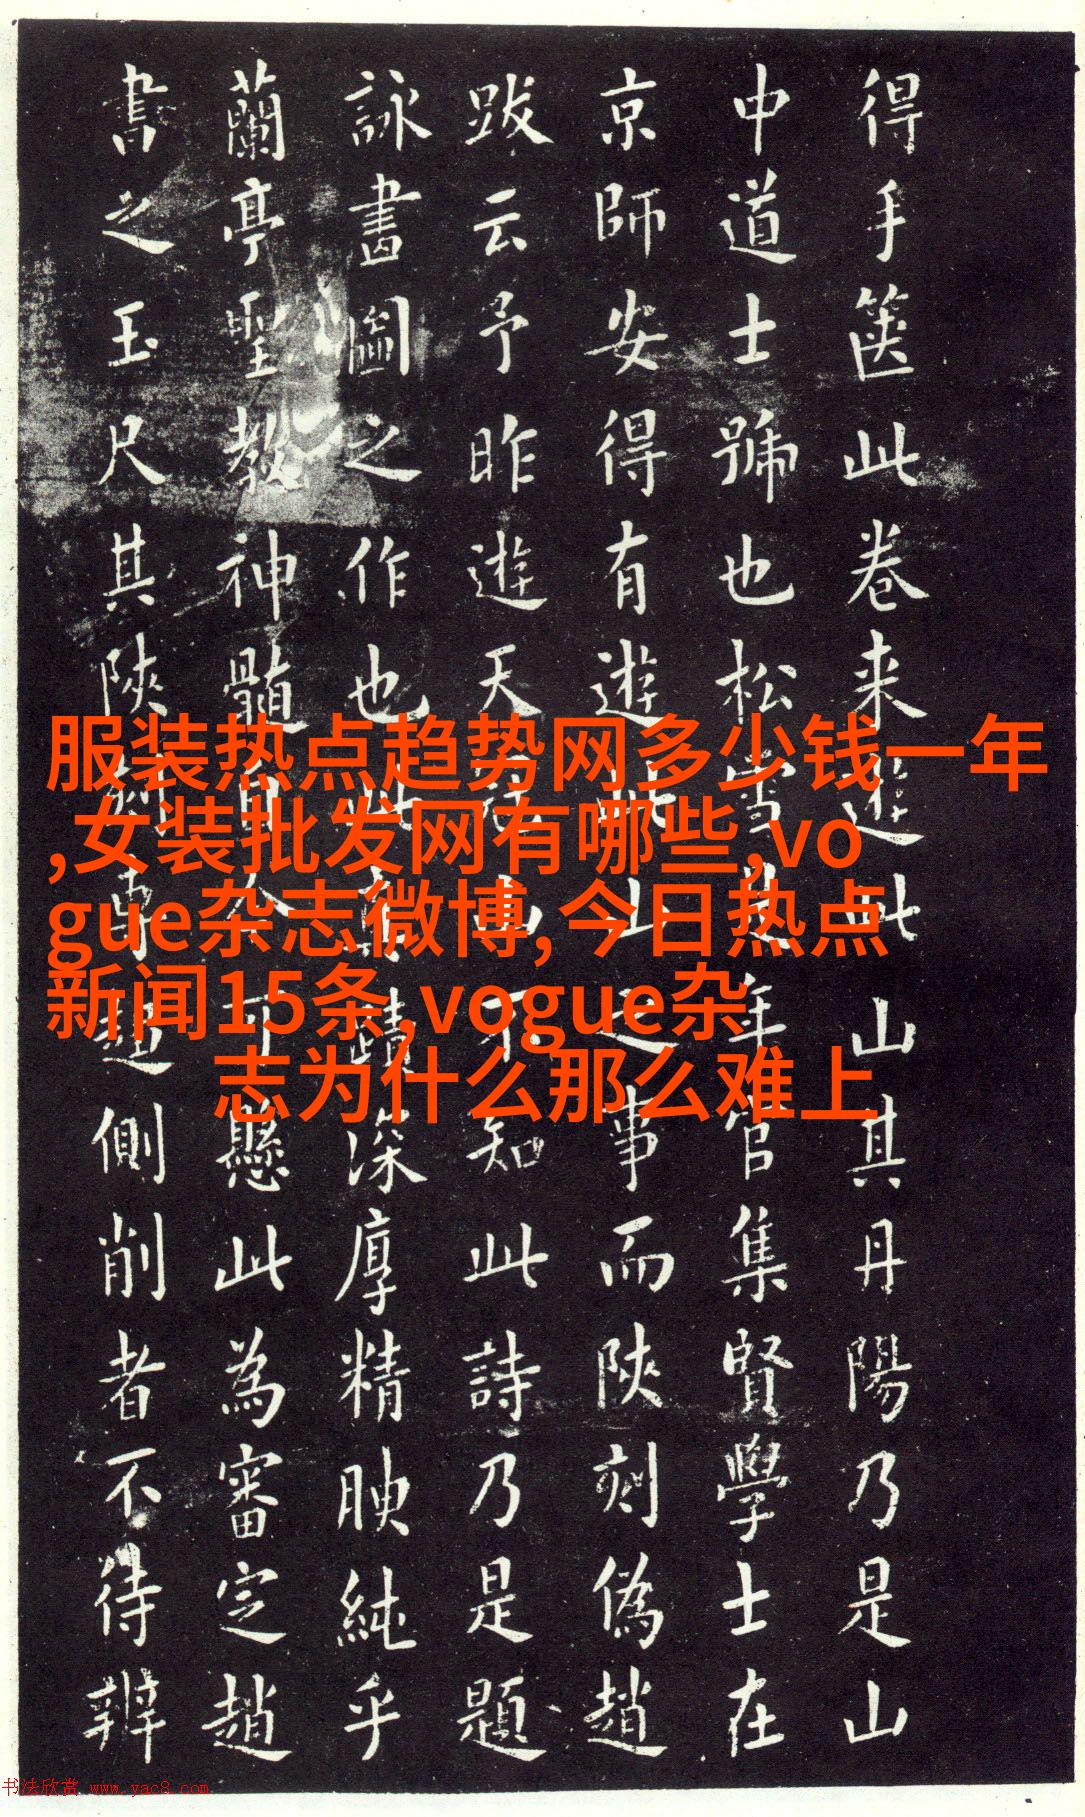 得手箧此卷来遊此山其丹陽乃是山
中道士號也松雪年官集賢學士在
京師安得有遊此山之事而陝刻偽趙
跋云予昨遊天冠山不知此詩乃是題
詠畫圖之作也此蹟深厚精腴純乎
蘭亭聖教神髓直入可懸此為審定趙
書之玉尺其陝刻專趨側削者不待辨
服装热点趋势网多少钱一年
,女装批发网有哪些,vo
gue杂志微博,今日热点
新闻15条,vogue杂
志为什么那么难上
书法欣赏 www.yac8.com